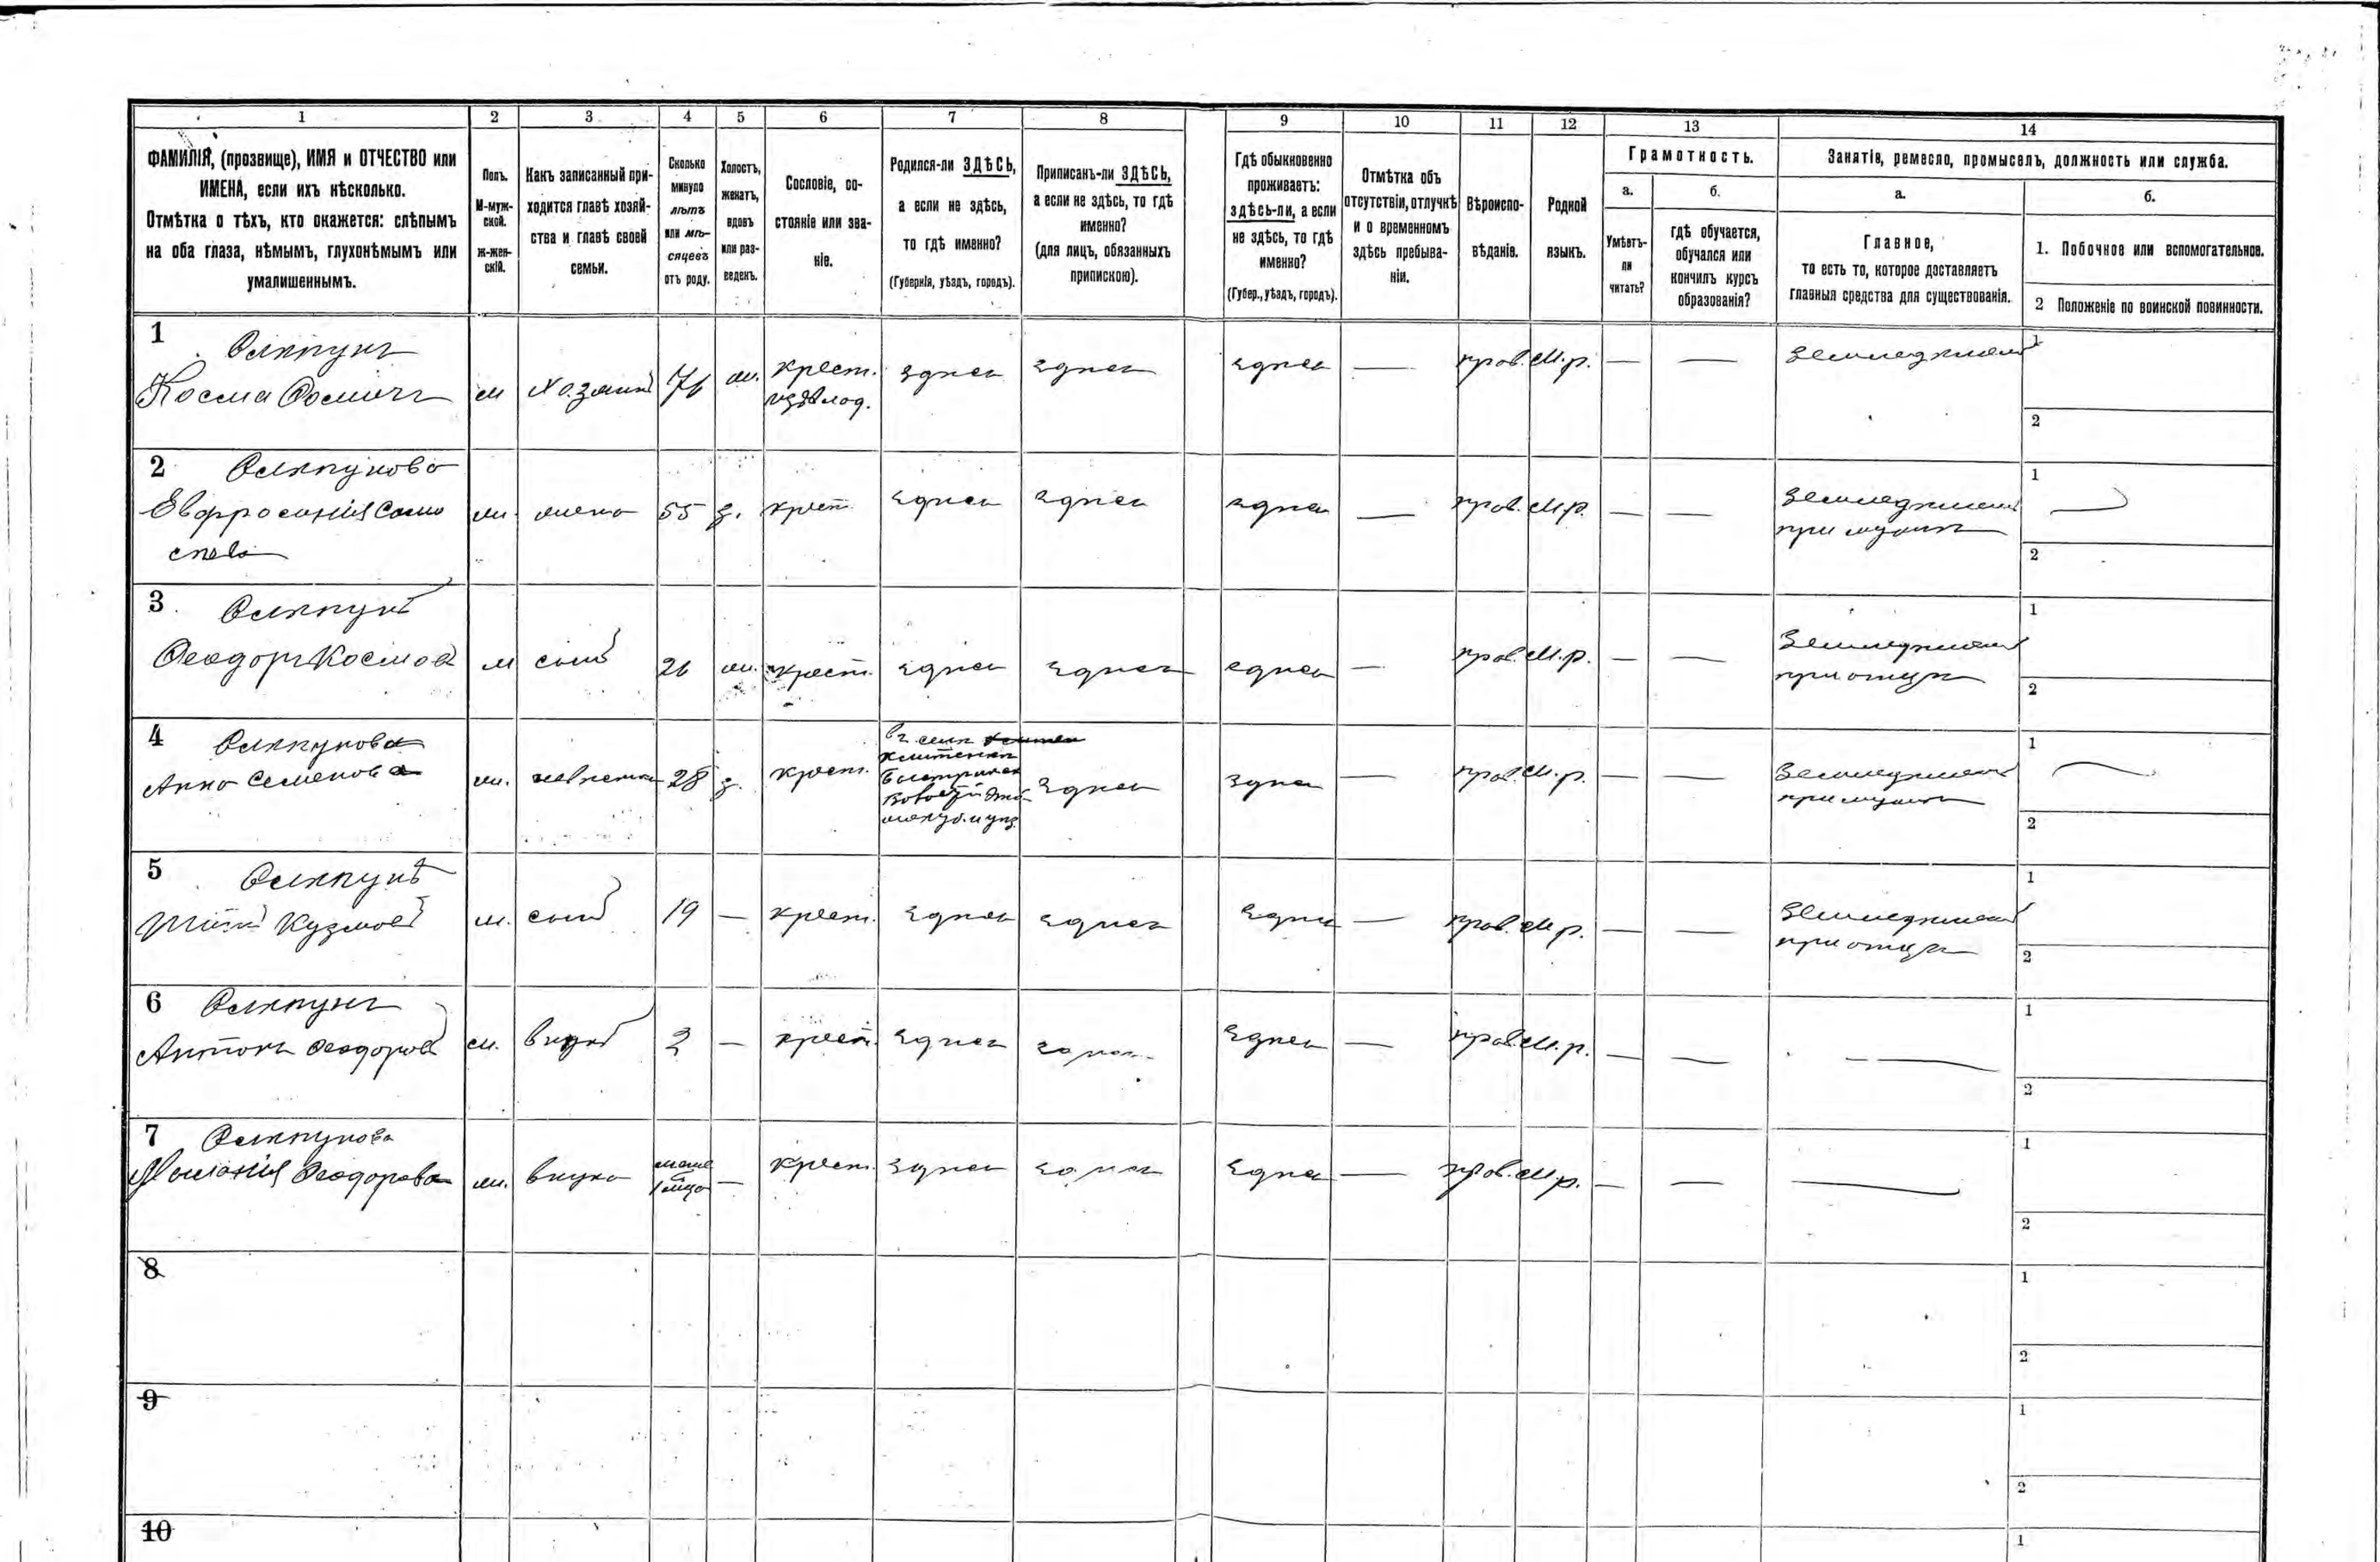 1 2 3 4 5 6 7 8 9 10 11 12 13 14
ФАМИЛІЯ, (прозвище), ИМЯ и ОТЧЕСТВО или
ИМЕНА, если ихъ нѣсколько.
Отмѣтка о тѣхъ, кто окажется: слѣпымъ
на оба глаза, нѣмымъ, глухонѣмымъ или
умалишеннымъ.
Полъ.
М-муж-
ской.
ж-жен-
скій.
Какъ записанный при-
ходится главѣ хозяй-
ства и главѣ своей
семьи.
Сколько
минуло
лѣтъ
или мѣ-
сяцевъ
отъ роду.
Холостъ,
женатъ,
вдовъ
или раз-
веденъ.
Сословіе, со-
стояніе или зва-
ніе.
Родился-ли ЗДѢСЬ,
а если не здѣсь,
то гдѣ именно?
(Губернія, уѣздъ, городъ).
Приписанъ-ли ЗДѢСЬ,
а если не здѣсь, то гдѣ
именно?
(для лицъ, обязанныхъ
припискою).
Гдѣ обыкновенно
проживаетъ:
здѣсь-ли, а если
не здѣсь, то гдѣ
именно?
(Губер., уѣздъ, городъ).
Отмѣтка объ
отсутствіи, отлучкѣ
и о временномъ
здѣсь пребыва-
ніи.
Вѣроиспо-
вѣданіе.
Родной
языкъ.
Грамотность.
а.
Умѣетъ-
ли
читать?
б.
гдѣ обучается,
обучался или
кончилъ курсъ
образованія?
Занятіе, ремесло, промыселъ, должность или служба.
а.
Главное,
то есть то, которое доставляетъ
главныя средства для существованія.
б.
1. Побочное или вспомогательное.
2 Положеніе по воинской повинности.
1
Косма м хозяинъ ж. крест. здѣсь здѣсь здѣсь — прав. М.р. — — земледѣліе
1
2
2
Евфросинія ж. жена 55 з. крест. здѣсь здѣсь здѣсь — прав. М.р. — — земледѣліе
при мужѣ
1
2
3
Ѳеодоръ Космовъ м сынъ 26 ж. крест. здѣсь здѣсь здѣсь — прав. М.р. — — земледѣліе
при отцѣ
1
2
4
Анна Семенова ж. невѣстка 28 з. крест. здѣсь здѣсь — прав. М.р. — — земледѣліе
при мужѣ
1
2
5
Кузмовъ м. сынъ 19 — крест. здѣсь здѣсь здѣсь — прав. М.р. — — земледѣліе
при отцѣ
1
2
6
Антонъ Ѳеодоровъ м. внукъ — крест. здѣсь здѣсь здѣсь — прав. М.р. — — —
1
2
7
Ѳеодорова ж. внука — крест. здѣсь здѣсь здѣсь — прав. М.р. — — —
1
2
8
1
2
9
1
2
10
1